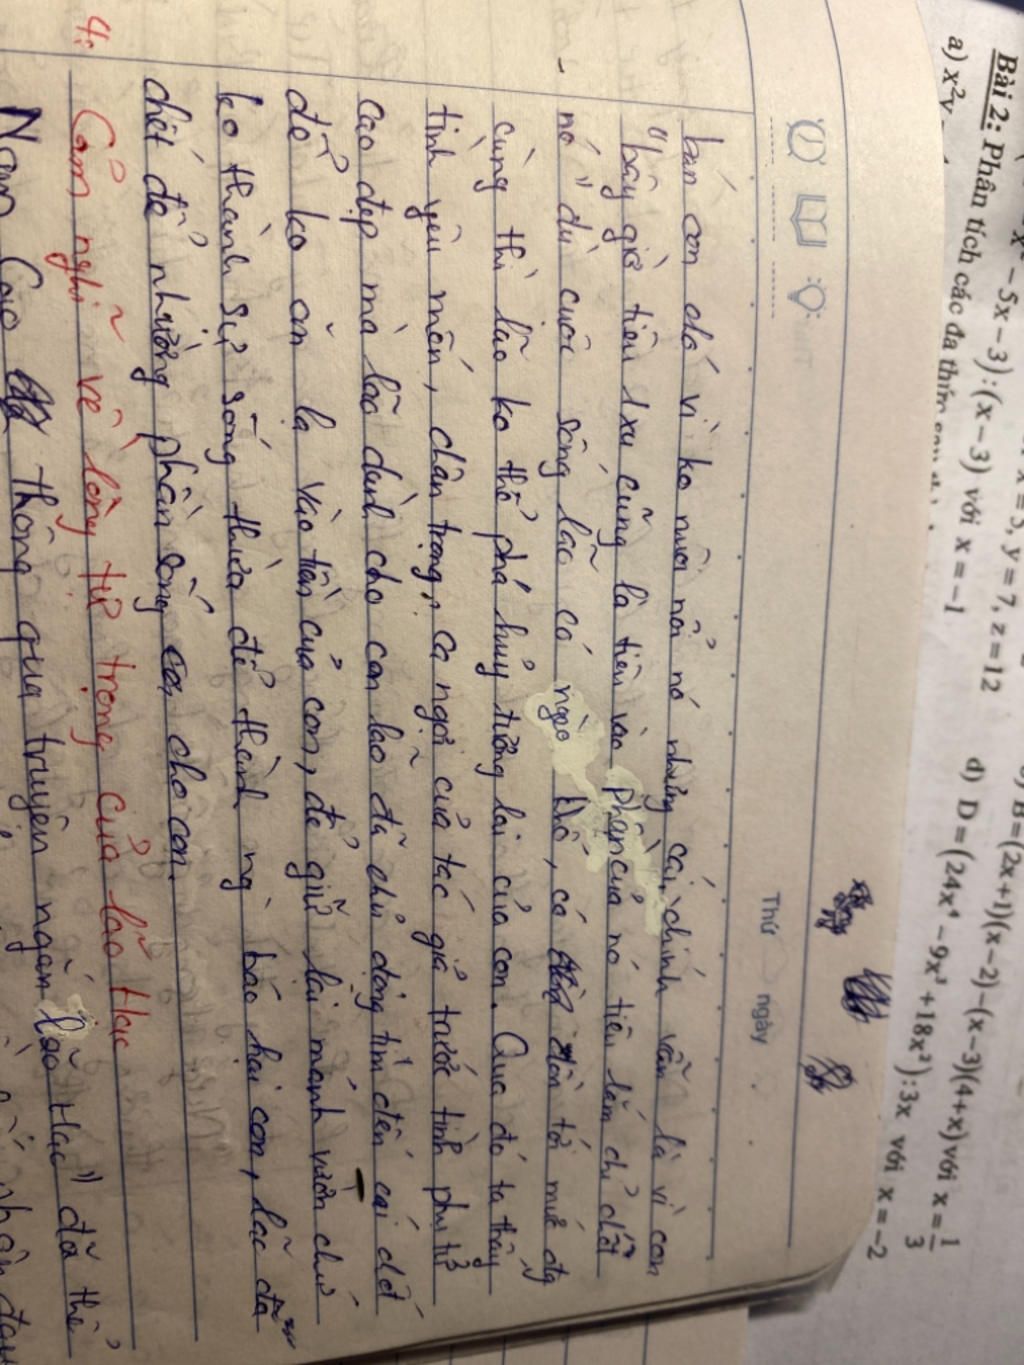 x² − 5x − 3):(x − 3) với x = −1
x = 5, y = 7, z = 12
Bài 2: Phân tích các đa thức sau
a) x²y
B=(2x+1)(x−2)−(x−3)(4+x) với x = 1/3
d) D = (24x⁴ − 9x³ + 18x²):3x với x = −2
Thứ ngày
bán con chó vì ko nuôi nổi nó nhưng cái chính vẫn là vì con
"bây giờ tiêu 1 xu cũng là tiêu vào phần của nó tiêu lắm chỉ chết
- nó" dù cuộc sống lão có nghèo khó, có đến tới mức
cùng thì lão ko thể phá huỷ tương lai của con. Qua đó ta thấy
tình yêu mến, chân trọng, ca ngợi của tác giả trước tình phụ tử
cao đẹp mà lão dành cho con lão đã chủ động tìm đến cái chết
để ko ăn lạ vào tiền của con, để giữ lại mảnh vườn chứ
ko thành sự sống thừa để thành ng báo hại con, lão đã
chết để nhường phần sống cho con.
4: Cảm nghĩ về lòng tự trọng của lão Hạc
Nam Cao thông qua truyện ngắn lão Hạc" đã thể